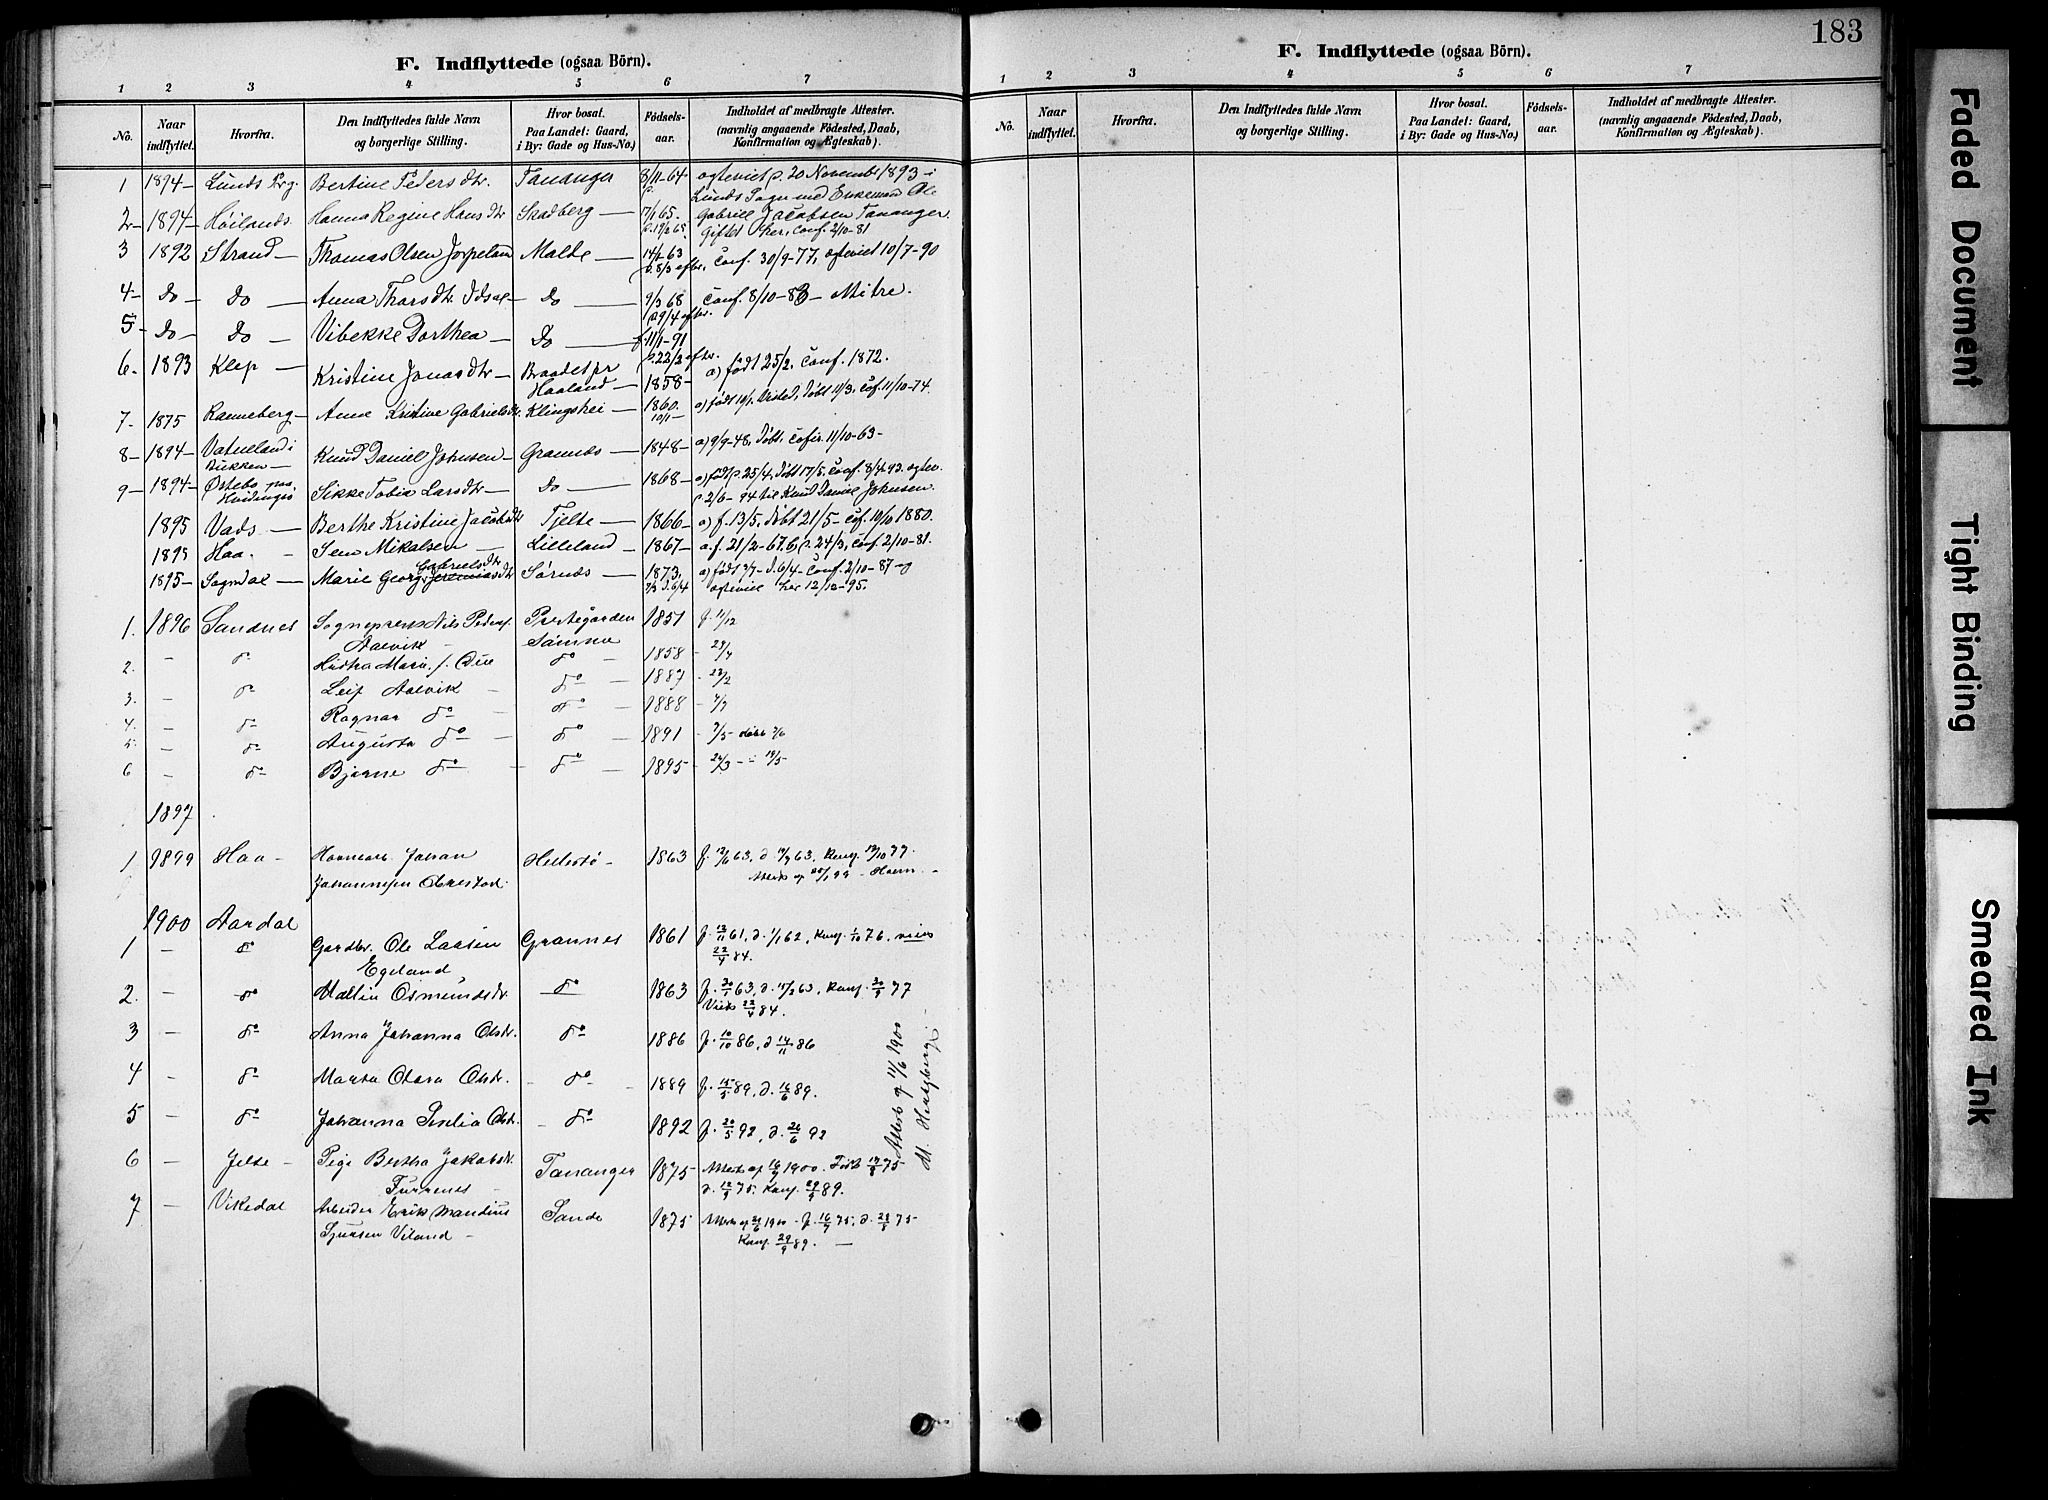 183
F. Indflyttede (ogsaa Börn).
1 2 3 4 5 6 7
No. Naar indflyttet. Hvorfra. Den Indflyttedes fulde Navn og borgerlige Stilling. Hvor bosat. Paa Landet: Gaard, i By: Gade og Hus-No.) Fødsels-aar. Indholdet af medbragte Attester. (navnlig angaaende Fødested, Daab, Konfirmation og Ægteskab).
1 1894 Lunds Prg. Bertine Pedersdtr. Tananger 8/11-64 egteviet d. 20 Novembr 1893 i Lunds Sogn med Enkemand Ole Gabriel Jacobsen Tananger
2 1894 Høilands Hanna Regine Hansdtr Skadberg 17/1 65. Giftet her, Conf. 2/10-81
3 1892 Strand Thomas Olsen Jørpeland Malde 14/1-63 Conf. 30/9-77, egteviet 10/7-90
4 Do Do Anna Thorsdtr Idsøe Do 9/3 68 Conf. 8/10-83
5 Do Do Vibekke Dorthea Do f. 11/1-91
6 1893 Klep Kristine Jonasdtr Braadet pr Haaland 1858 a) født 25/2, Conf. 1872.
7 1875 Ranneberg Anne Kristine Gabrielsdtr. Klingshei 1860. 10/1 a) født 10/1. døbt 11/3. Cof. 11/10-74.
8 1894 Vatneland i Bukken Knud Daniel Johnsen Grannes 1848 a) 9/9-48, døbt. Cofir. 11/10-63
9 1894 Østebø paa Heidingsø Sikke Tobia Larsdtr Do 1868 a) født d. 25/4, døbt 17/5. Conf. 8/4 92. egtev. d. 2/6-94 til Knud Daniel Johnsen.
1895 Vads Berthe Kristine Jacobsdtr Tjelte 1866 a) f. 13/5, døbt 21/5 Cof. 10/10 1880.
1895 Haa. Sem Mikalsen Lilleland 1867 a. f. 21/2-67. d. 24/3, Conf. 2/10-81.
1895 Sogndal Marie Georg. Gabrielsdtr Sørnes 1873. a) født d. 6/4 Conf. 2/10-87 og egteviet her 12/10-95.
1. 1896 Sandnes Sogneprest Nils Peders. Aalvik Prestegarden Sømme 1851 f. 11/12
2. — do Hustru Marie f. Due do 1858 29/4
3. — do Leif Aalvik do 1887 22/2
4. — do Ragnar do do 1888 4/7
5. — do Augusta do do 1891 7/5 døbt 7/6
6 — do Bjarne do do 1895 24/3 19/5
1897
1 1899 Haa Johan Johannesen Obrestad. Hellestø 1863 f. 12/6 63, d. 19/7 63, Konf. 14/10 77. Attest af 20/1 99
1900 Aardal
1 — do Gardbr. Ole Larsen Egeland Grannes 1861 f. 12/11 61, d. 1/1 62, Konf. 1/10 76, viet 22/4 84.
2. — do Mallin Osmundsdtr do 1863 f. 20/1 63, d. 15/2 63, Konf. 30/9 77 Viet 22/4 84.
3 — do Anna Johanna Olsdtr. do 1886 f. 10/10 86, d 14/11 86
4 — do Marta Olava Olsdtr. do 1889 f. 15/5 89, d. 16/6 89.
5 — do Johanna Olsdtr. do 1892 f. 20/5 92, d. 26/6 92
Attest af 11/6 1900
6 — Jelse Pige Bertha Jakobsdtr. Furrenes Tananger 1875 Attest af 16/7 1900. Født 17/8 75 d. 12/9 75. Konf. 29/9 89.
7 — Vikedal Arbeider Erik Mandius Sjursen Viland Sande 1875 Attest af 21/6 1900 f. 16/7 75, d. 29/8 75 Konf. 29/9 89.
F. Indflyttede (ogsaa Börn).
1 2 3 4 5 6 7
No. Naar indflyttet. Hvorfra. Den Indflyttedes fulde Navn og borgerlige Stilling. Hvor bosat. Paa Landet: Gaard, i By: Gade og Hus-No.) Fødsels-aar. Indholdet af medbragte Attester. (navnlig angaaende Fødested, Daab, Konfirmation og Ægteskab).
Faded Document
Tight Binding
Smeared Ink